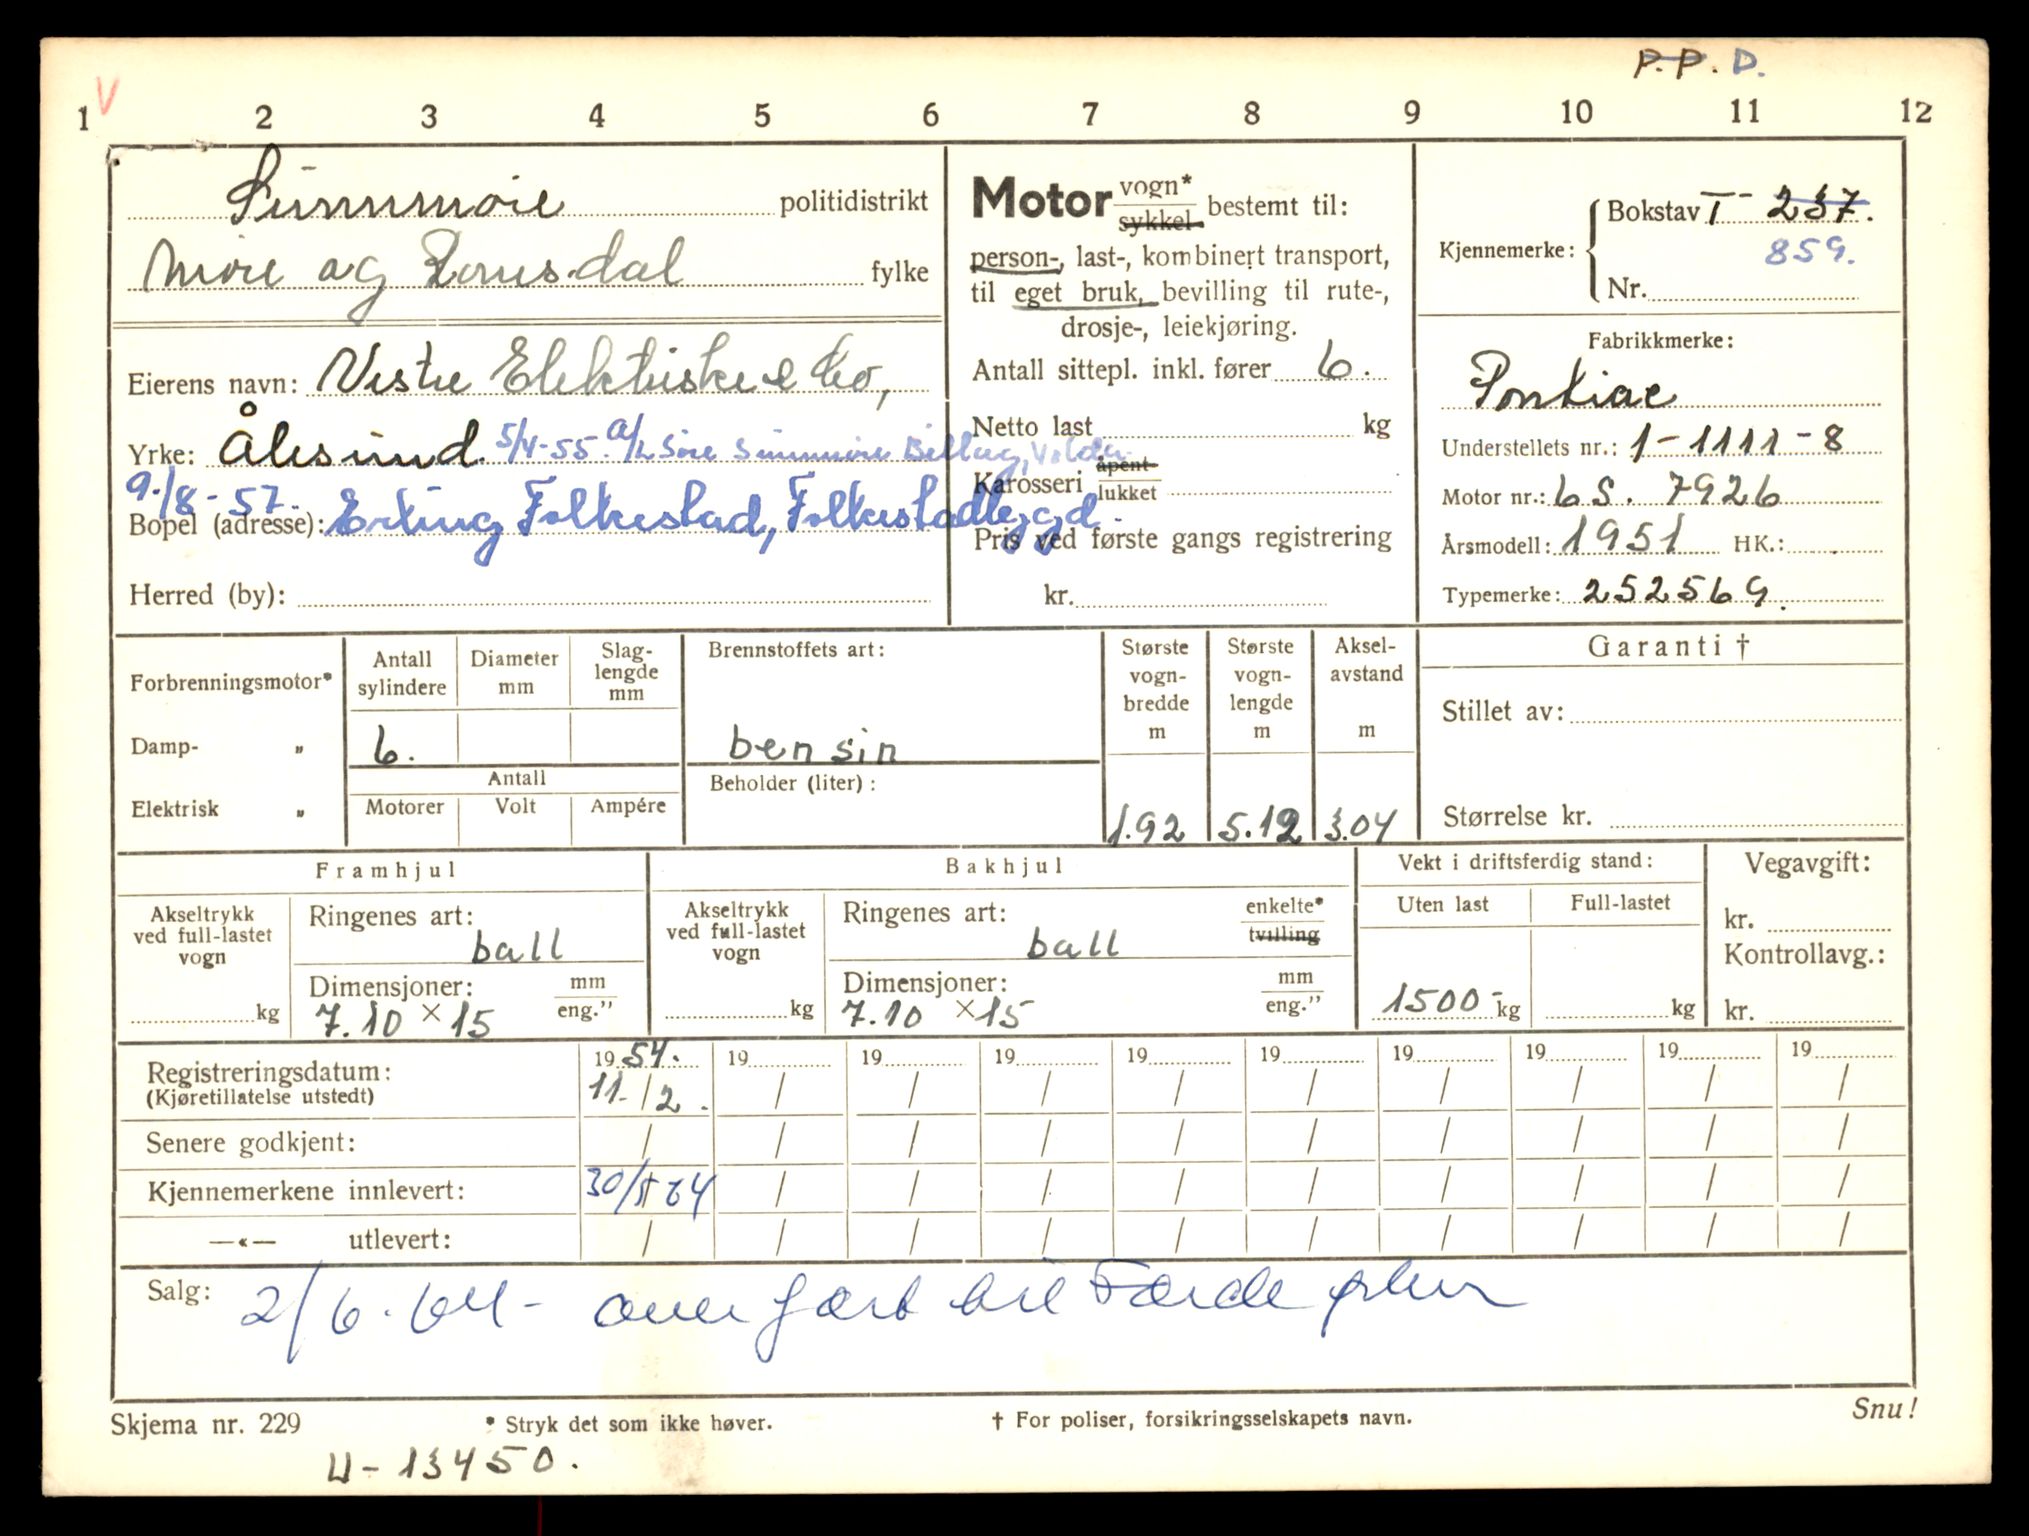 P.P. D.
V
1 2 3 4 5 6 7 8 9 10 11 12
Sunnmøre politidistrikt
Møre og Romsdal fylke
Eierens navn: Vestre Elektriske Co,
Yrke: Ålesund. 5/4-55. A/L Søre Sunnmøre Billag, Volda.
9./8-57.
Bopel (adresse): Erling Folkestad, Folkestadbygd.
Herred (by):
Motor vogn* sykkel bestemt til:
person-, last-, kombinert transport,
til eget bruk, bevilling til rute-,
drosje-, leiekjøring.
Antall sittepl. inkl. fører 6.
Netto last kg
Karosseri åpent lukket
Pris ved første gangs registrering
kr.
Kjennemerke:
Bokstav T- 237.
859.
Nr.
Fabrikkmerke:
Pontiac
Understellets nr.: 1-1111-8
Motor nr.: 6S. 7926
Årsmodell: 1951 HK.:
Typemerke: 252569.
Forbrenningsmotor*
Damp- „
Elektrisk „
Antall sylindere
Diameter mm
Slag-lengde mm
6.
Antall
Motorer Volt Ampére
Brennstoffets art:
bensin
Beholder (liter):
Største vogn-bredde m
Største vogn-lengde m
Aksel-avstand m
1.92 5.12 3.04
Garanti †
Stillet av:
Størrelse kr.
Framhjul
Akseltrykk ved full-lastet vogn
kg
Ringenes art:
ball
Dimensjoner: mm eng."
7.10 × 15
Bakhjul
Akseltrykk ved full-lastet vogn
kg
Ringenes art: enkelte* tvilling
ball
Dimensjoner: mm eng."
7.10 × 15
Vekt i driftsferdig stand:
Uten last Full-lastet
1500- kg kg
Vegavgift:
kr.
Kontrollavg.:
kr.
19 54. 19 19 19 19 19 19 19 19 19
Registreringsdatum: 11./2. / / / / / / / / /
(Kjøretillatelse utstedt)
Senere godkjent: / / / / / / / / / /
Kjennemerkene innlevert: 30/5 64 / / / / / / / / /
—«— utlevert: / / / / / / / / / /
Salg: 2/6.64 - overført til Førde
Skjema nr. 229 * Stryk det som ikke høver. † For poliser, forsikringsselskapets navn. Snu!
U-13450.